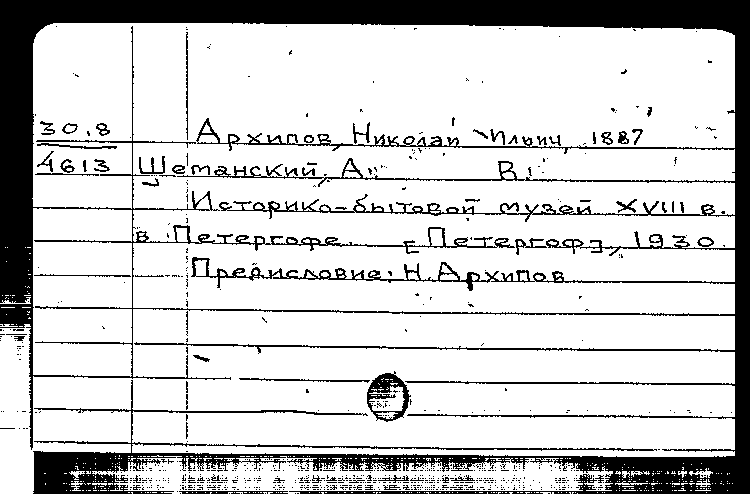 30.8 Архипов, Николай Ильич, 1887
4613 Шеманский, А. В.
Историко-бытовой музей XVIII в.
в Петергофе. [Петергоф], 1930.
Предисловие: Н. Архипов